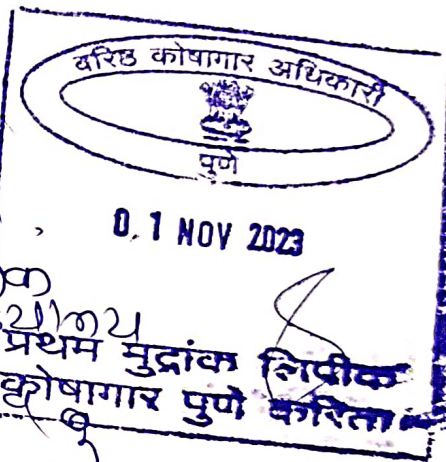 वरिष्ठ कोषागार अधिकारी
पुणे
0.1 NOV 2023
प्रथम मुद्रांक लिपीक
कोषागार पुणे करिता